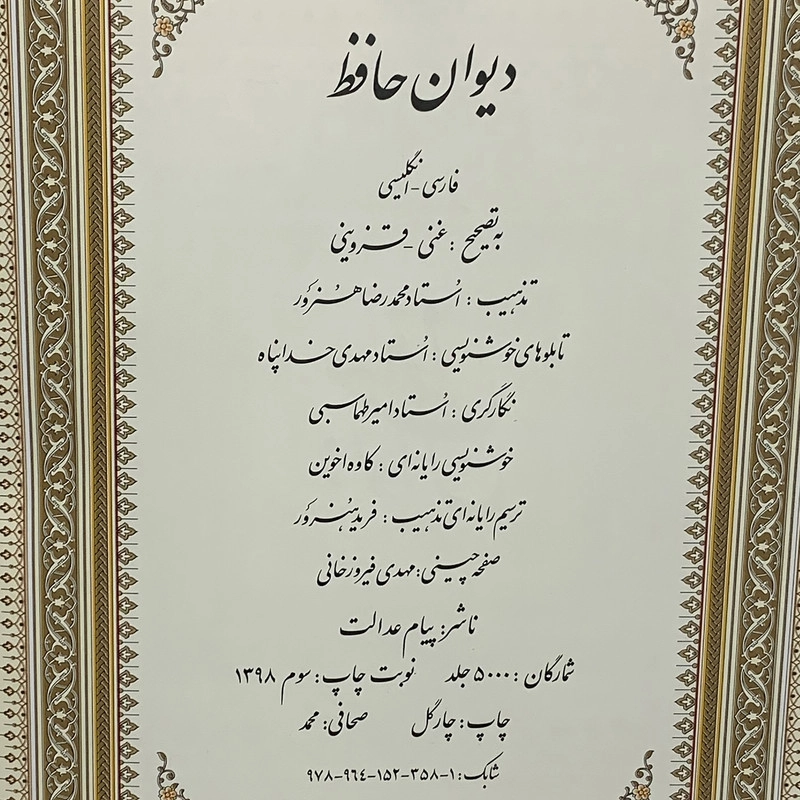 دیوان حافظ
فارسی - انگلیسی
به تصحیح : غنی - قزوینی
تذهیب : اُستاد محمدرضا هُنروَر
تابلوهای خوشنویسی : اُستاد مهدی خداپناه
نگارگری : اُستاد امیر طهماسبی
خوشنویسی رایانه‌ای : کاوه اخوین
ترسیم رایانه‌ای تذهیب : فربد هُنروَر
صفحه چینی : مهدی فیروزخانی
ناشر : پیام عدالت
شمارگان : ۵۰۰۰ جلد نوبت چاپ : سوم ۱۳۹۸
چاپ : چارگل صحافی : محمد
شابک : ۱-۳۵۸-۱۵۲-۹۶۴-۹۷۸